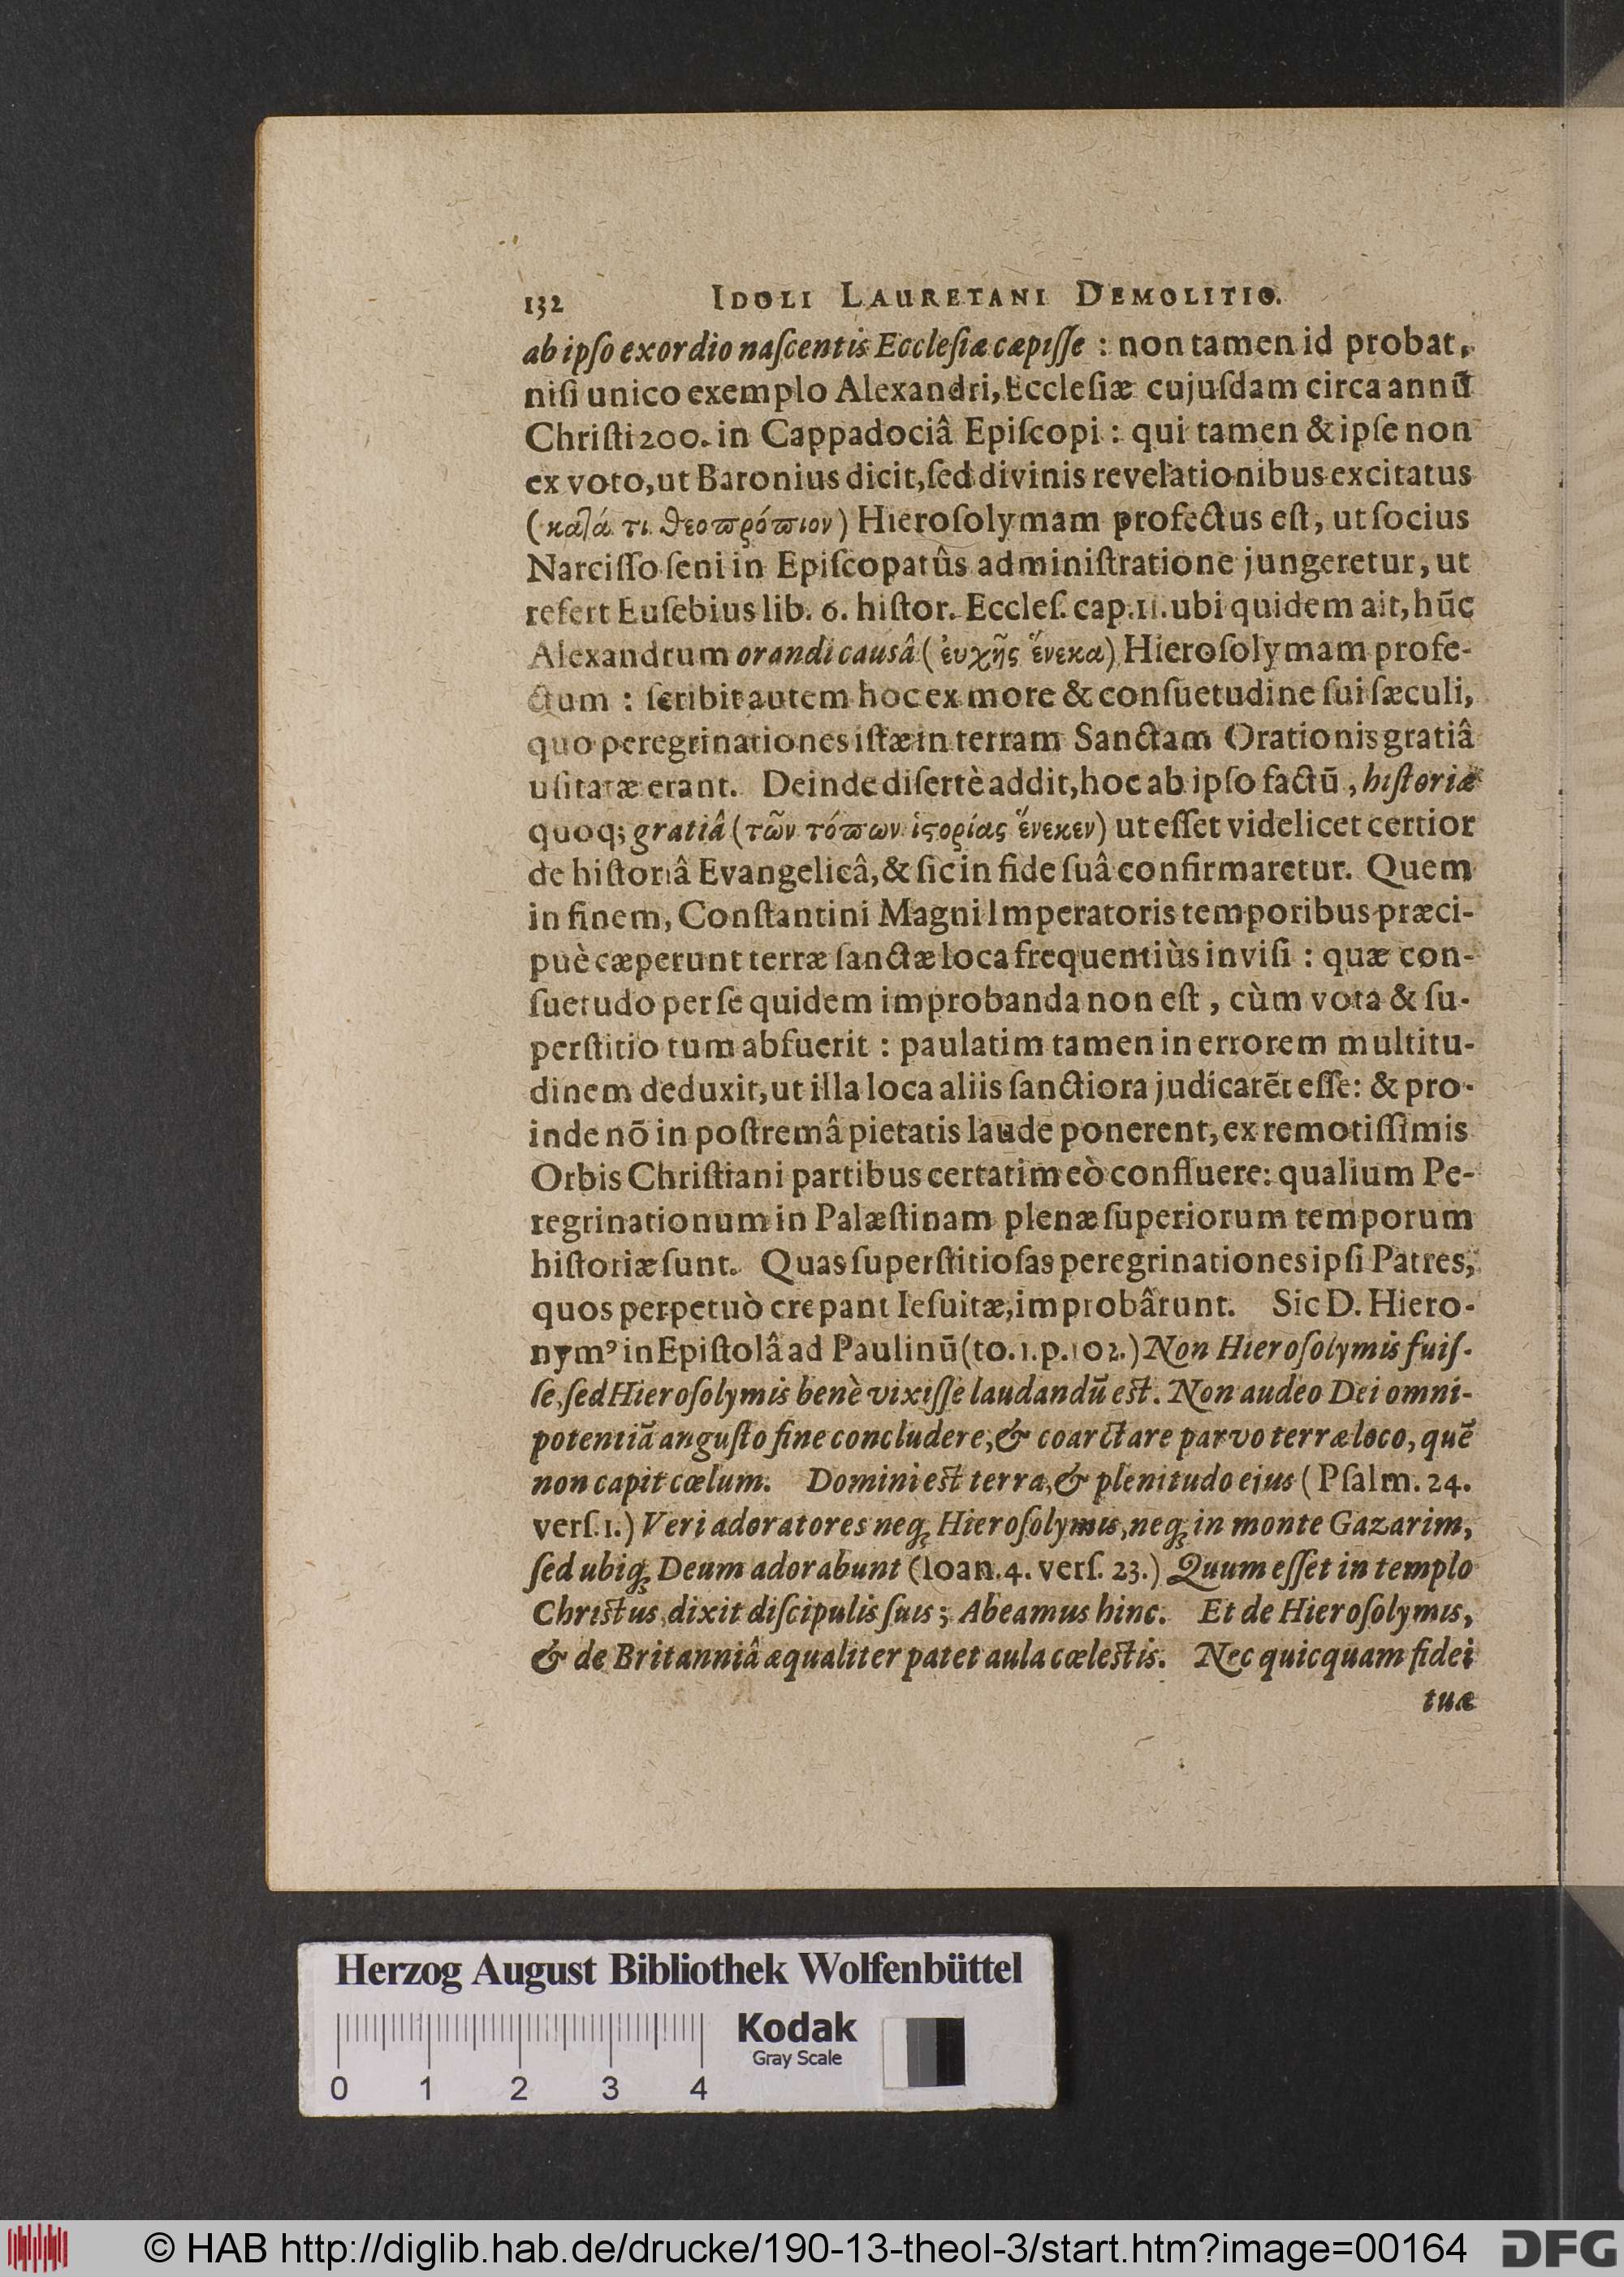 132 IDOLI LAURETANI DEMOLITIO.
ab ipſo exordio naſcentis Eccleſiæ cæpiſſe : non tamen id probat,
niſi unico exemplo Alexandri, Eccleſiæ cujuſdam circa annū
Chriſti 200. in Cappadociâ Epiſcopi : qui tamen & ipſe non
ex voto, ut Baronius dicit, ſed divinis revelationibus excitatus
(καλά τι θεοπρόπιον) Hieroſolymam profectus eſt, ut ſocius
Narciſſo ſeni in Epiſcopatûs adminiſtratione jungeretur, ut
refert Euſebius lib. 6. hiſtor. Eccleſ. cap. 11. ubi quidem ait, hūc
Alexandrum orandi causâ (ἐυχῆς ἕνεκα) Hieroſolymam profe-
ctum : ſcribit autem hoc ex more & conſuetudine ſui ſæculi,
quo peregrinationes iſtæ in terram Sanctam Orationis gratiâ
uſitatæ erant. Deinde diſertè addit, hoc ab ipſo factū, hiſtoriæ
quoq; gratiâ (τῶν τόπων ἱϛορίας ἕνεκεν) ut eſſet videlicet certior
de hiſtoriâ Evangelicâ, & ſic in fide ſuâ confirmaretur. Quem
in finem, Conſtantini Magni Imperatoris temporibus præci-
puè cæperunt terræ ſanctæ loca frequentiùs inviſi : quæ con-
ſuetudo per ſe quidem improbanda non eſt, cùm vota & ſu-
perſtitio tum abfuerit : paulatim tamen in errorem multitu-
dinem deduxit, ut illa loca aliis ſanctiora judicarēt eſſe: & pro-
inde nō in poſtremâ pietatis laude ponerent, ex remotiſſimis
Orbis Chriſtiani partibus certatim eò confluere: qualium Pe-
regrinationum in Palæſtinam plenæ ſuperiorum temporum
hiſtoriæ ſunt. Quas ſuperſtitioſas peregrinationes ipſi Patres,
quos perpetuò crepant Ieſuitæ, improbârunt. Sic D. Hiero-
nymꝰ in Epiſtolâ ad Paulinū (to. 1. p. 102.) Non Hieroſolymis fuiſ-
ſe, ſed Hieroſolymis benè vixiſſe laudandū eſt. Non audeo Dei omni-
potentiā anguſto fine concludere, & coarctare parvo terræ loco, quē
non capit cœlum. Domini eſt terra, & plenitudo ejus (Pſalm. 24.
verſ. 1.) Veri adoratores neq; Hieroſolymis, neq; in monte Gazarim,
ſed ubiq; Deum adorabunt (Ioan. 4. verſ. 23.) Quum eſſet in templo
Chriſtus, dixit diſcipulis ſuis; Abeamus hinc. Et de Hieroſolymis,
& de Britanniâ æqualiter patet aula cœleſtis. Nec quicquam fidei
tuæ
Herzog August Bibliothek Wolfenbüttel
Kodak
Gray Scale
0 1 2 3 4
© HAB http://diglib.hab.de/drucke/190-13-theol-3/start.htm?image=00164
DFG